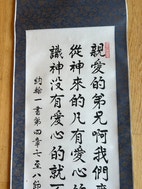 親愛的弟兄啊我們
從神來的凡有愛心的
識神没有愛心的就不
約翰一書第四章七至八節